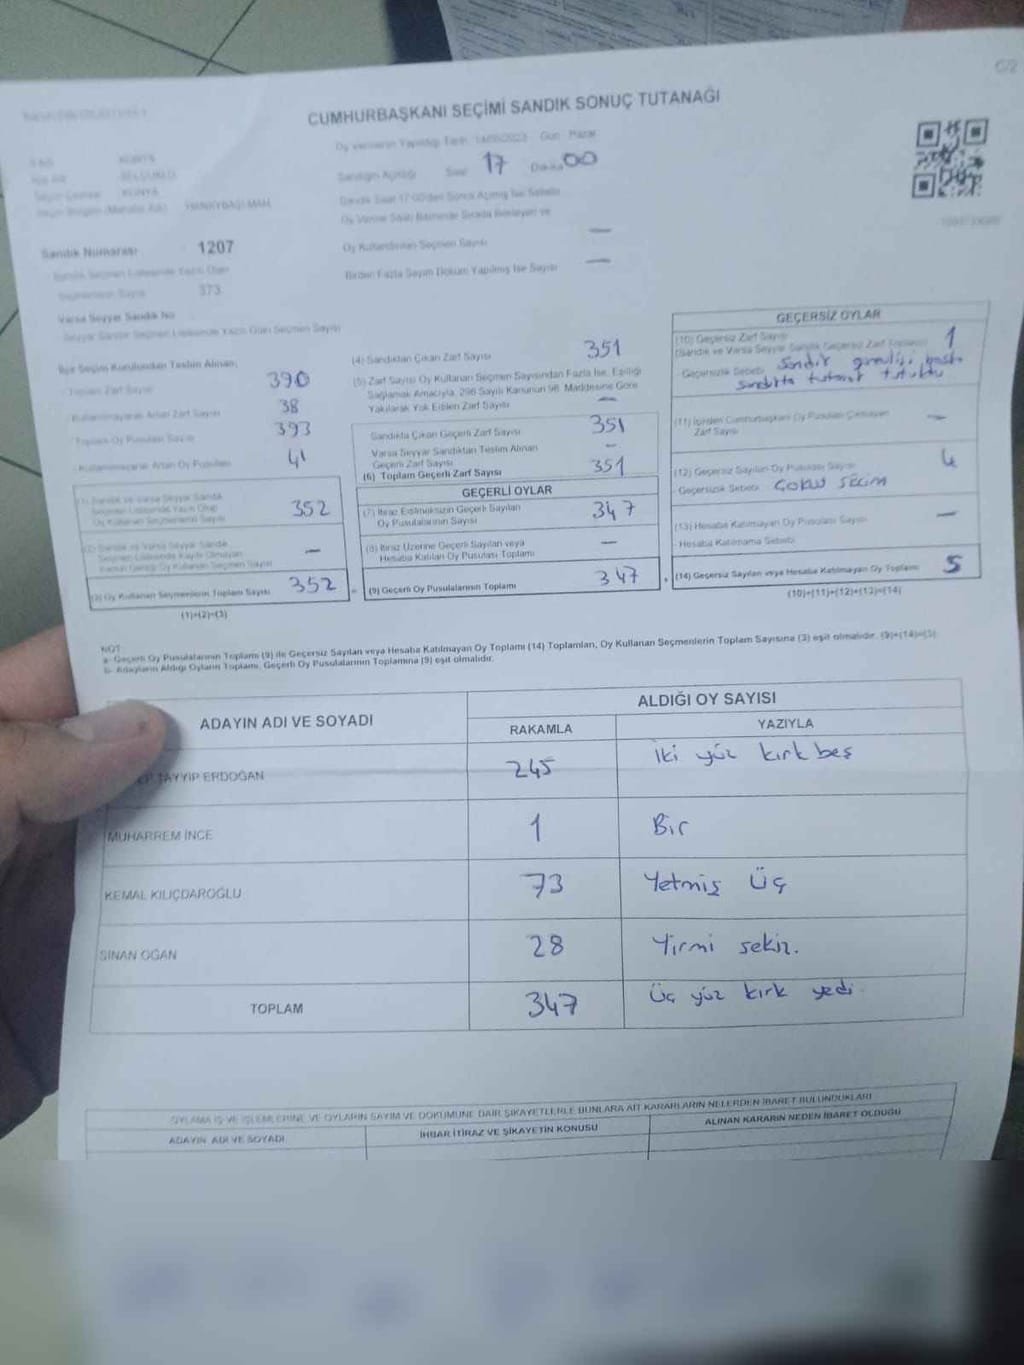 C/2
CUMHURBAŞKANI SEÇİMİ SANDIK SONUÇ TUTANAĞI
Oy Vermenin Yapıldığı Tarih 14/05/2023 Gün Pazar
Sandığın Açıldığı Saat 17 Dakika 00
KONYA
SELÇUKLU
KONYA
Sandık Saat 17:00'den Sonra Açılmış İse Sebebi
Oy Verme Saati Bitiminde Sırada Bekleyen ve
Oy Kullandırılan Seçmen Sayısı —
Birden Fazla Sayım Döküm Yapılmış İse Sayısı —
Sandık Numarası 1207
Sandık Seçmen Listesinde Yazılı Olan
Seçmenlerin Sayısı 373
Varsa Seyyar Sandık No
Seyyar Sandık Seçmen Listesinde Yazılı Olan Seçmen Sayısı
İlçe Seçim Kurulundan Teslim Alınan;
Toplam Zarf Sayısı 390
Kullanılmayarak Artan Zarf Sayısı 38
Toplam Oy Pusulası Sayısı 393
Kullanılmayarak Artan Oy Pusulası 41
(1) Sandık ve Varsa Seyyar Sandık
Seçmen Listesinde Yazılı Olup
Oy Kullanan Seçmenlerin Sayısı 352
(2) Sandık ve Varsa Seyyar Sandık
Seçmen Listesinde Kayıtlı Olmayan
Kanun Gereği Oy Kullanan Seçmen Sayısı —
(3) Oy Kullanan Seçmenlerin Toplam Sayısı 352
(1)+(2)=(3)
(4) Sandıktan Çıkan Zarf Sayısı 351
(5) Zarf Sayısı Oy Kullanan Seçmen Sayısından Fazla İse, Eşitliği
Sağlamak Amacıyla, 298 Sayılı Kanunun 98. Maddesine Göre
Yakılarak Yok Edilen Zarf Sayısı —
Sandıkta Çıkan Geçerli Zarf Sayısı 351
Varsa Seyyar Sandıktan Teslim Alınan
Geçerli Zarf Sayısı —
(6) Toplam Geçerli Zarf Sayısı 351
GEÇERLİ OYLAR
(7) İtiraz Edilmeksizin Geçerli Sayılan
Oy Pusulalarının Sayısı 347
(8) İtiraz Üzerine Geçerli Sayılan veya
Hesaba Katılan Oy Pusulası Toplamı —
(9) Geçerli Oy Pusulalarının Toplamı 347
GEÇERSİZ OYLAR
(10) Geçersiz Zarf Sayısı
(Sandık ve Varsa Seyyar Sandık Geçersiz Zarf Toplamı) 1
Geçersizlik Sebebi Sandık
tutanak tutuldu
(11) İçinden Cumhurbaşkanı Oy Pusulası Çıkmayan
Zarf Sayısı —
(12) Geçersiz Sayılan Oy Pusulası Sayısı 4
Geçersizlik Sebebi ÇOKLU SEÇİM
(13) Hesaba Katılmayan Oy Pusulası Sayısı —
Hesaba Katılmama Sebebi
(14) Geçersiz Sayılan veya Hesaba Katılmayan Oy Toplamı 5
(10)+(11)+(12)+(13)=(14)
NOT
a- Geçerli Oy Pusulalarının Toplamı (9) ile Geçersiz Sayılan veya Hesaba Katılmayan Oy Toplamı (14) Toplamları, Oy Kullanan Seçmenlerin Toplam Sayısına (3) eşit olmalıdır. (9)+(14)=(3)
b- Adayların Aldığı Oyların Toplamı, Geçerli Oy Pusulalarının Toplamına (9) eşit olmalıdır.
ADAYIN ADI VE SOYADI
ALDIĞI OY SAYISI
RAKAMLA YAZIYLA
TAYYİP ERDOĞAN 245 İki yüz kırk beş
MUHARREM İNCE 1 Bir
KEMAL KILIÇDAROĞLU 73 Yetmiş Üç
SİNAN OĞAN 28 Yirmi sekiz.
TOPLAM 347 Üç yüz kırk yedi
OYLAMA İŞ VE İŞLEMLERİNE VE OYLARIN SAYIM VE DÖKÜMÜNE DAİR ŞİKAYETLERLE BUNLARA AİT KARARLARIN NELERDEN İBARET BULUNDUKLARI
ADAYIN ADI VE SOYADI İHBAR İTİRAZ VE ŞİKAYETİN KONUSU ALINAN KARARIN NEDEN İBARET OLDUĞU